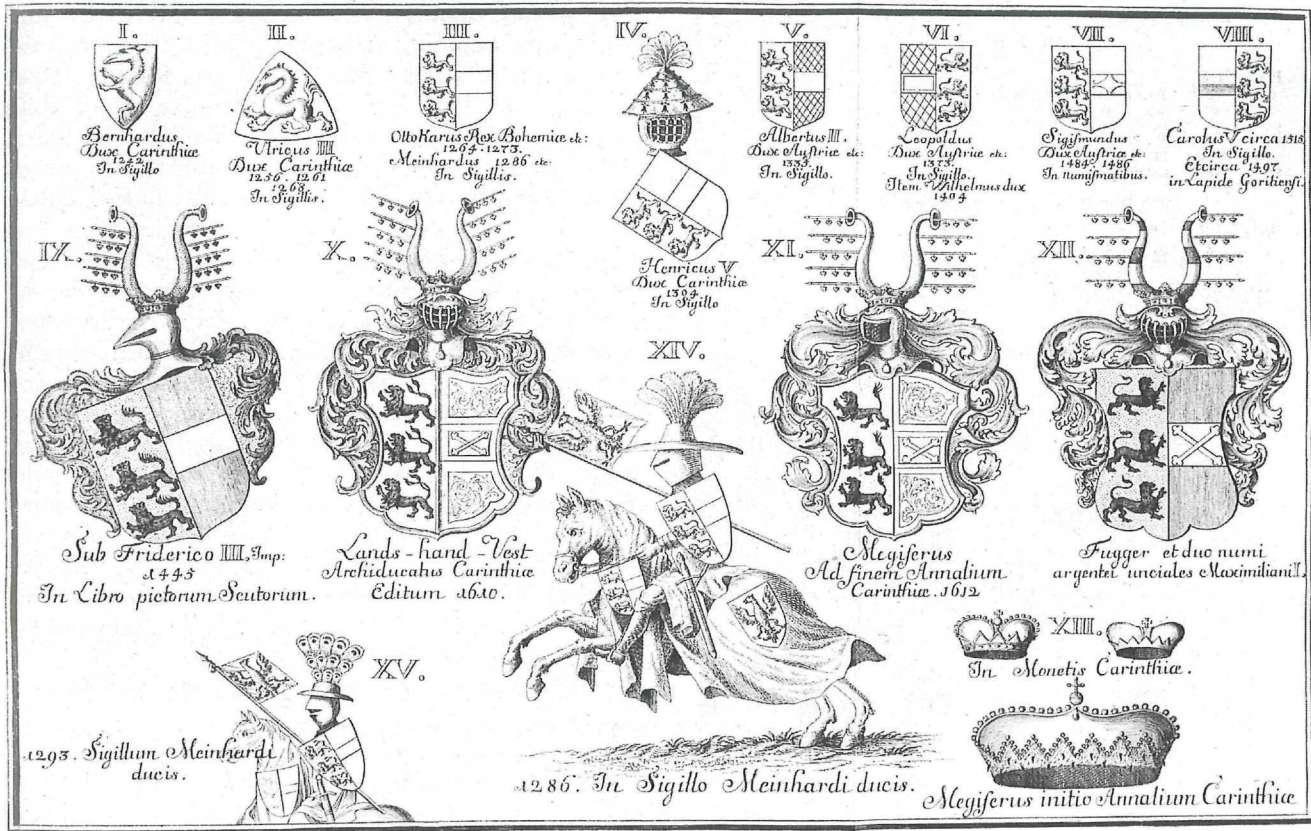 I.
Bernhardus
Dux Carinthiæ
1242
In Sigillo
II.
Ulricus III
Dux Carinthiæ
1256. 1261
1268
In Sigillis.
III.
OttoKarus Rex Bohemiæ etc:
1264. 1273.
Meinhardus 1286 etc:
In Sigillis.
IV.
Henricus V
Dux Carinthiæ
1304
In Sigillo
V.
Albertus III.
Dux Austriæ etc:
In Sigillo.
VI.
Leopoldus
Dux Austriæ etc:
1373.
In Sigillo.
Item Wilhelmus dux
1404
VII.
Sigismundus
Dux Austriæ etc:
1484. 1486
In numismatibus.
VIII.
Carolus V circa 1518
In Sigillo.
Et circa 1497
in Lapide Goritiensi.
IX.
Sub Friderico III, Imp:
1445
In Libro pictorum Scutorum.
X.
Lands-hand-Vest
Archiducatus Carinthiæ
Editum 1610.
XI.
Megiserus
Ad finem Annalium
Carinthiæ. 1612
XII.
Fugger et duo numi
argentei unciales Maximiliani I.
XIII.
In Monetis Carinthiæ.
Megiserus initio Annalium Carinthiæ
XIV.
1286. In Sigillo Meinhardi ducis.
XV.
1293. Sigillum Meinhardi
ducis.